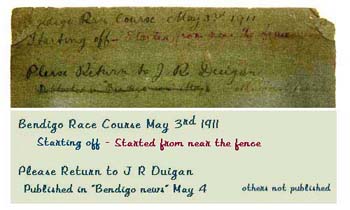 Bendigo Race Course May 3rd 1911
Starting off - Started from near the fence
Please Return to J. R. Duigan
Published in Bendigo news May 4
Bendigo Race Course May 3rd 1911
Starting off - Started from near the fence
Please Return to J R Duigan
Published in "Bendigo news" May 4 others not published